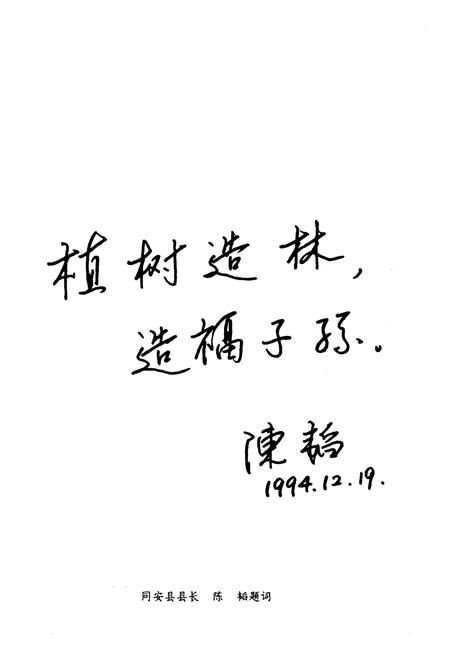 植树造林，
造福子孙。
陳韬
1994.12.19.
同安县县长 陈 韬题词